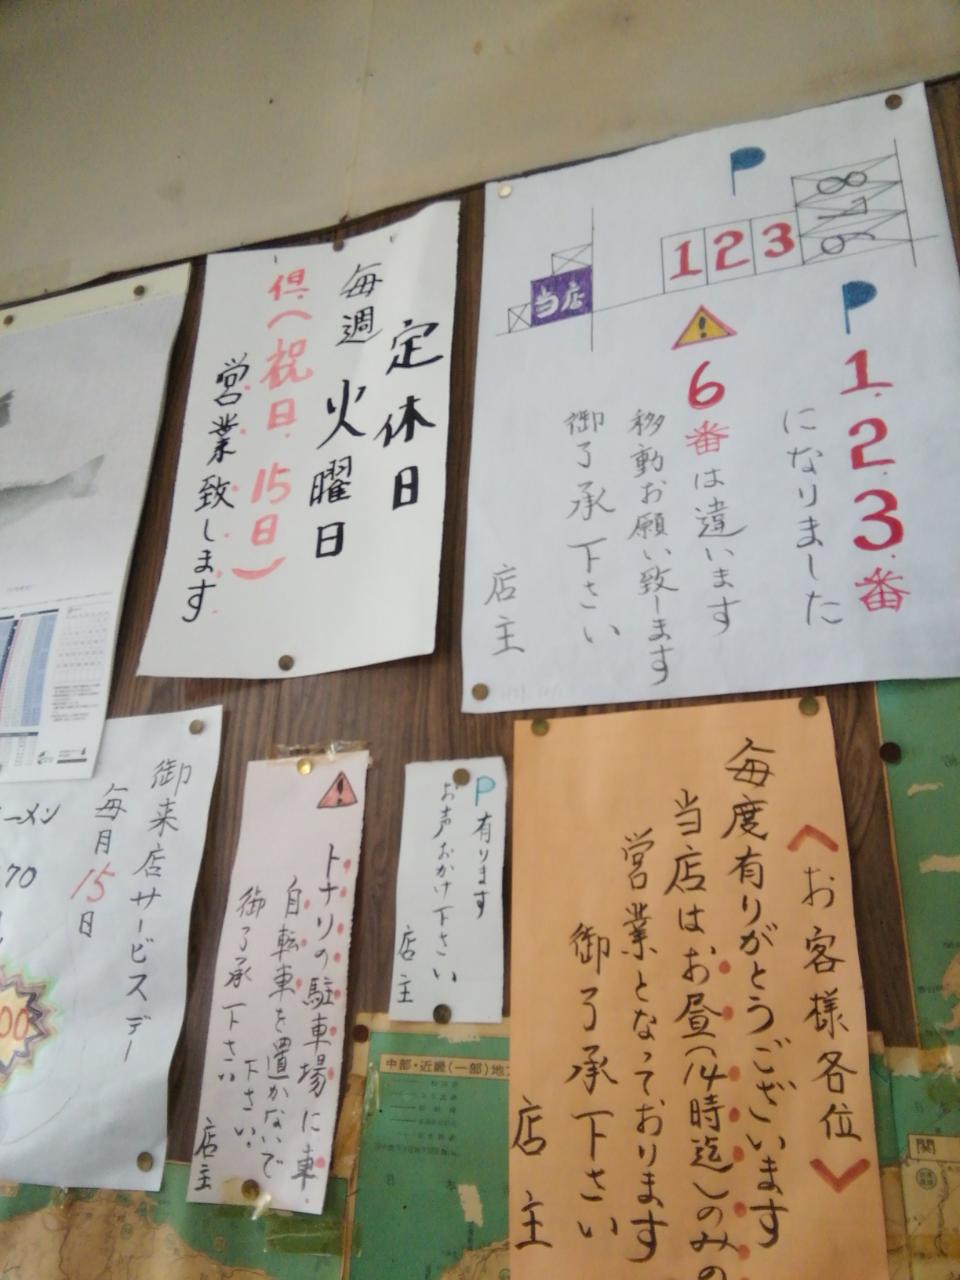 当店
1 2 3
P
P 1.2.3番
になりました
6番は違います
移動お願い致します
御了承下さい
店主
定休日
毎週 火曜日
倶(祝日.15日)
営業致します
御来店サービスデー
毎月15日
ーメン
70
00
トナリの駐車場に車.
自転車を置かないで
下さい.
御了承下さい
店主
P有ります
お声おかけ下さい
店主
<お客様各位>
毎度有りがとうございます
当店はお昼(14時迄)のみの
営業となっております
御了承下さい
店主
中部・近畿(一部)地
関